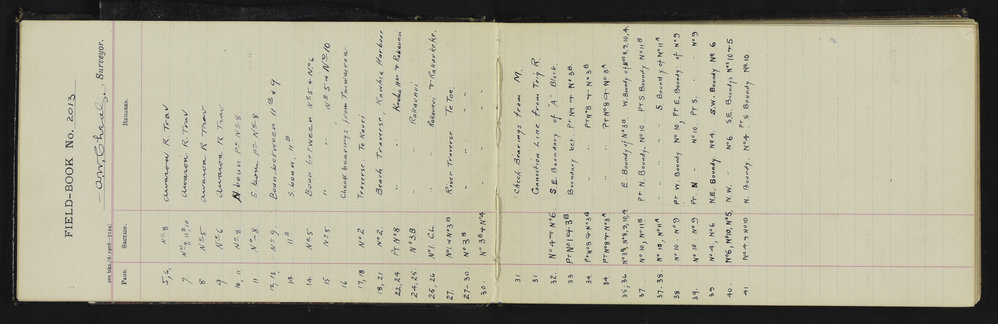 FIELD-BOOK No. 2013.
Surveyor.
200 bks./6/1908—7124]
PAGE. SECTION. REMARKS.
5, 6, No 8 Awaroa R. Trav
7 No 9, 11B, 10 Awaroa R. Trav
8 No 5 Awaroa R Trav
9 No 6 Awaroa R Trav
10, 11. No 8 N boun Pt No 8
11 No 8 S boun Pt No 8
12, 13, No 9 Boun between 11B & 9
14 11B S. boun. 11B
14 No 5 Boun between No 5 & No 6
15 No 5 " " No 5 & No 10
16 Check bearings from Tauwaroa
17, 18 No 2 Traverse Te Kauri
18, 21 No 2. Beach Traverse, Kawhia Harbour
22, 24. Pt No 8 " " Kawhia Har & Rakaunui
24, 25 No 3B " " Rakaunui
25, 26 No 1. CL " " Rakaunui &
27. No 4 & No 3B River Traverse Te Toe.
27-30. No 3B " " "
30 No 3B & No 4 " " "
31. Check Bearings from M.
31 Connection Line from Trig R.
32. No 4 & No 6. S.E. Boundary of "A" Block.
33 Pt No 1 & 3B Boundary bet. Pt No 1 & No 3B
34. Pt No 8 & No 3B " " Pt No 8 & No 3B
34 Pt No 8 & No 3A " " Pt No 8 & No 3A
35, 36 No 3A, No 8, 9, 10, 4. E. Boundy of No 3A. W. Boundy of No 8, 9, 10, 4.
37. No 10, No 11B Pt N. Boundy. No 10 Pt S. Boundy No 11B
37. 38 No 10, No 11A " " " S Boundy of No 11A
38 No 10. No 9 Pt W. Boundy No 10, Pt E. Boundy. of No 9
39. No 10 No 9 Pt N " No 10 Pt S. " No 9
39 No 4, No 6. N.E. Boundy No 4 S.W. Boundy No 6
40. No 6, No 10, No 5, N.W. " No 6. S.E. Boundy. Nos 10 & 5
41 No 4 & No 10 N. Boundy. No 4 Pt S Boundy No 10